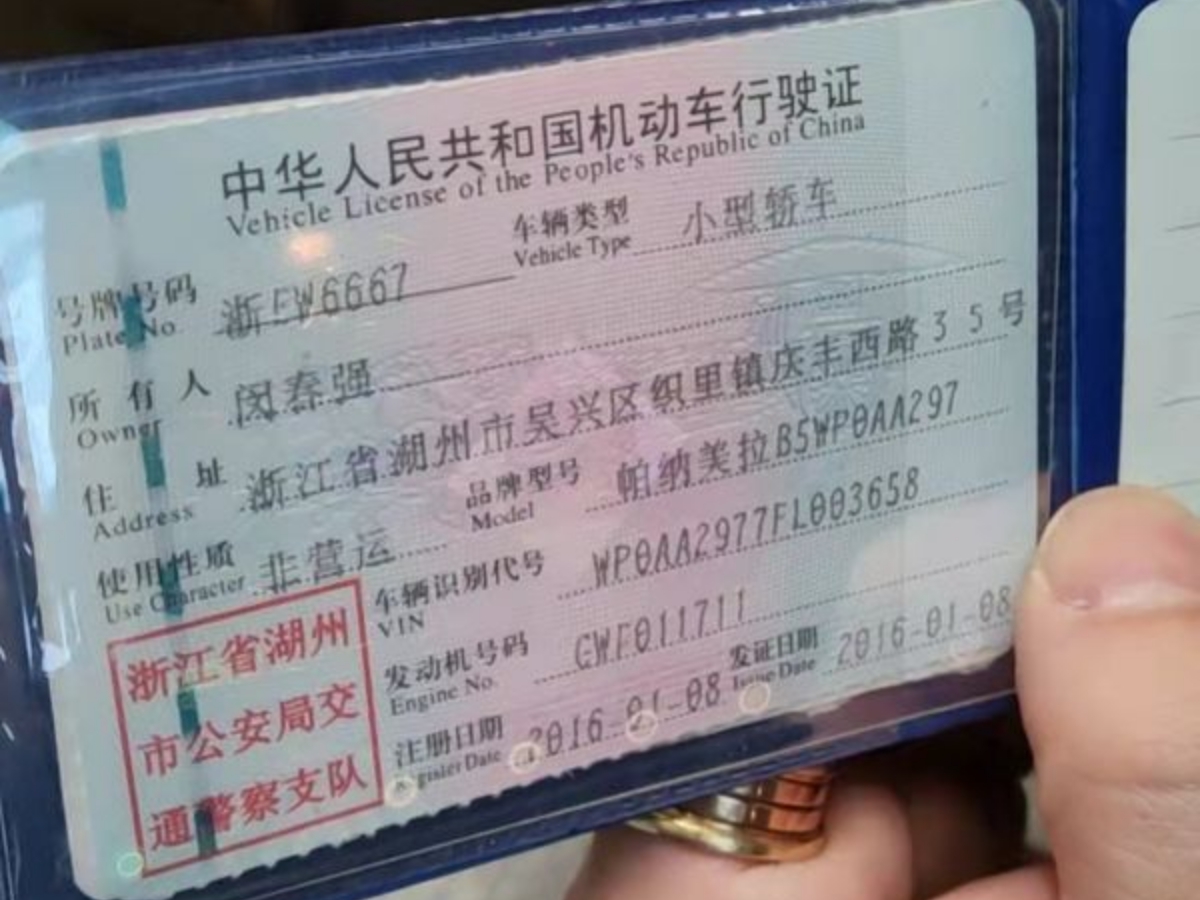 中华人民共和国机动车行驶证
Vehicle License of the People's Republic of China
号牌号码 浙EW6667 车辆类型 小型轿车
Plate No Vehicle Type
所有人 闵春强
Owner
住址 浙江省湖州市吴兴区织里镇庆丰西路35号
Address
使用性质 非营运 品牌型号 帕纳美拉B5WP0AA297
Use Character Model
车辆识别代号 WP0AA2977FL003658
VIN
发动机号码 CWF011711
Engine No.
注册日期 2016-01-08 发证日期 2016-01-08
Register Date Issue Date
浙江省湖州
市公安局交
通警察支队